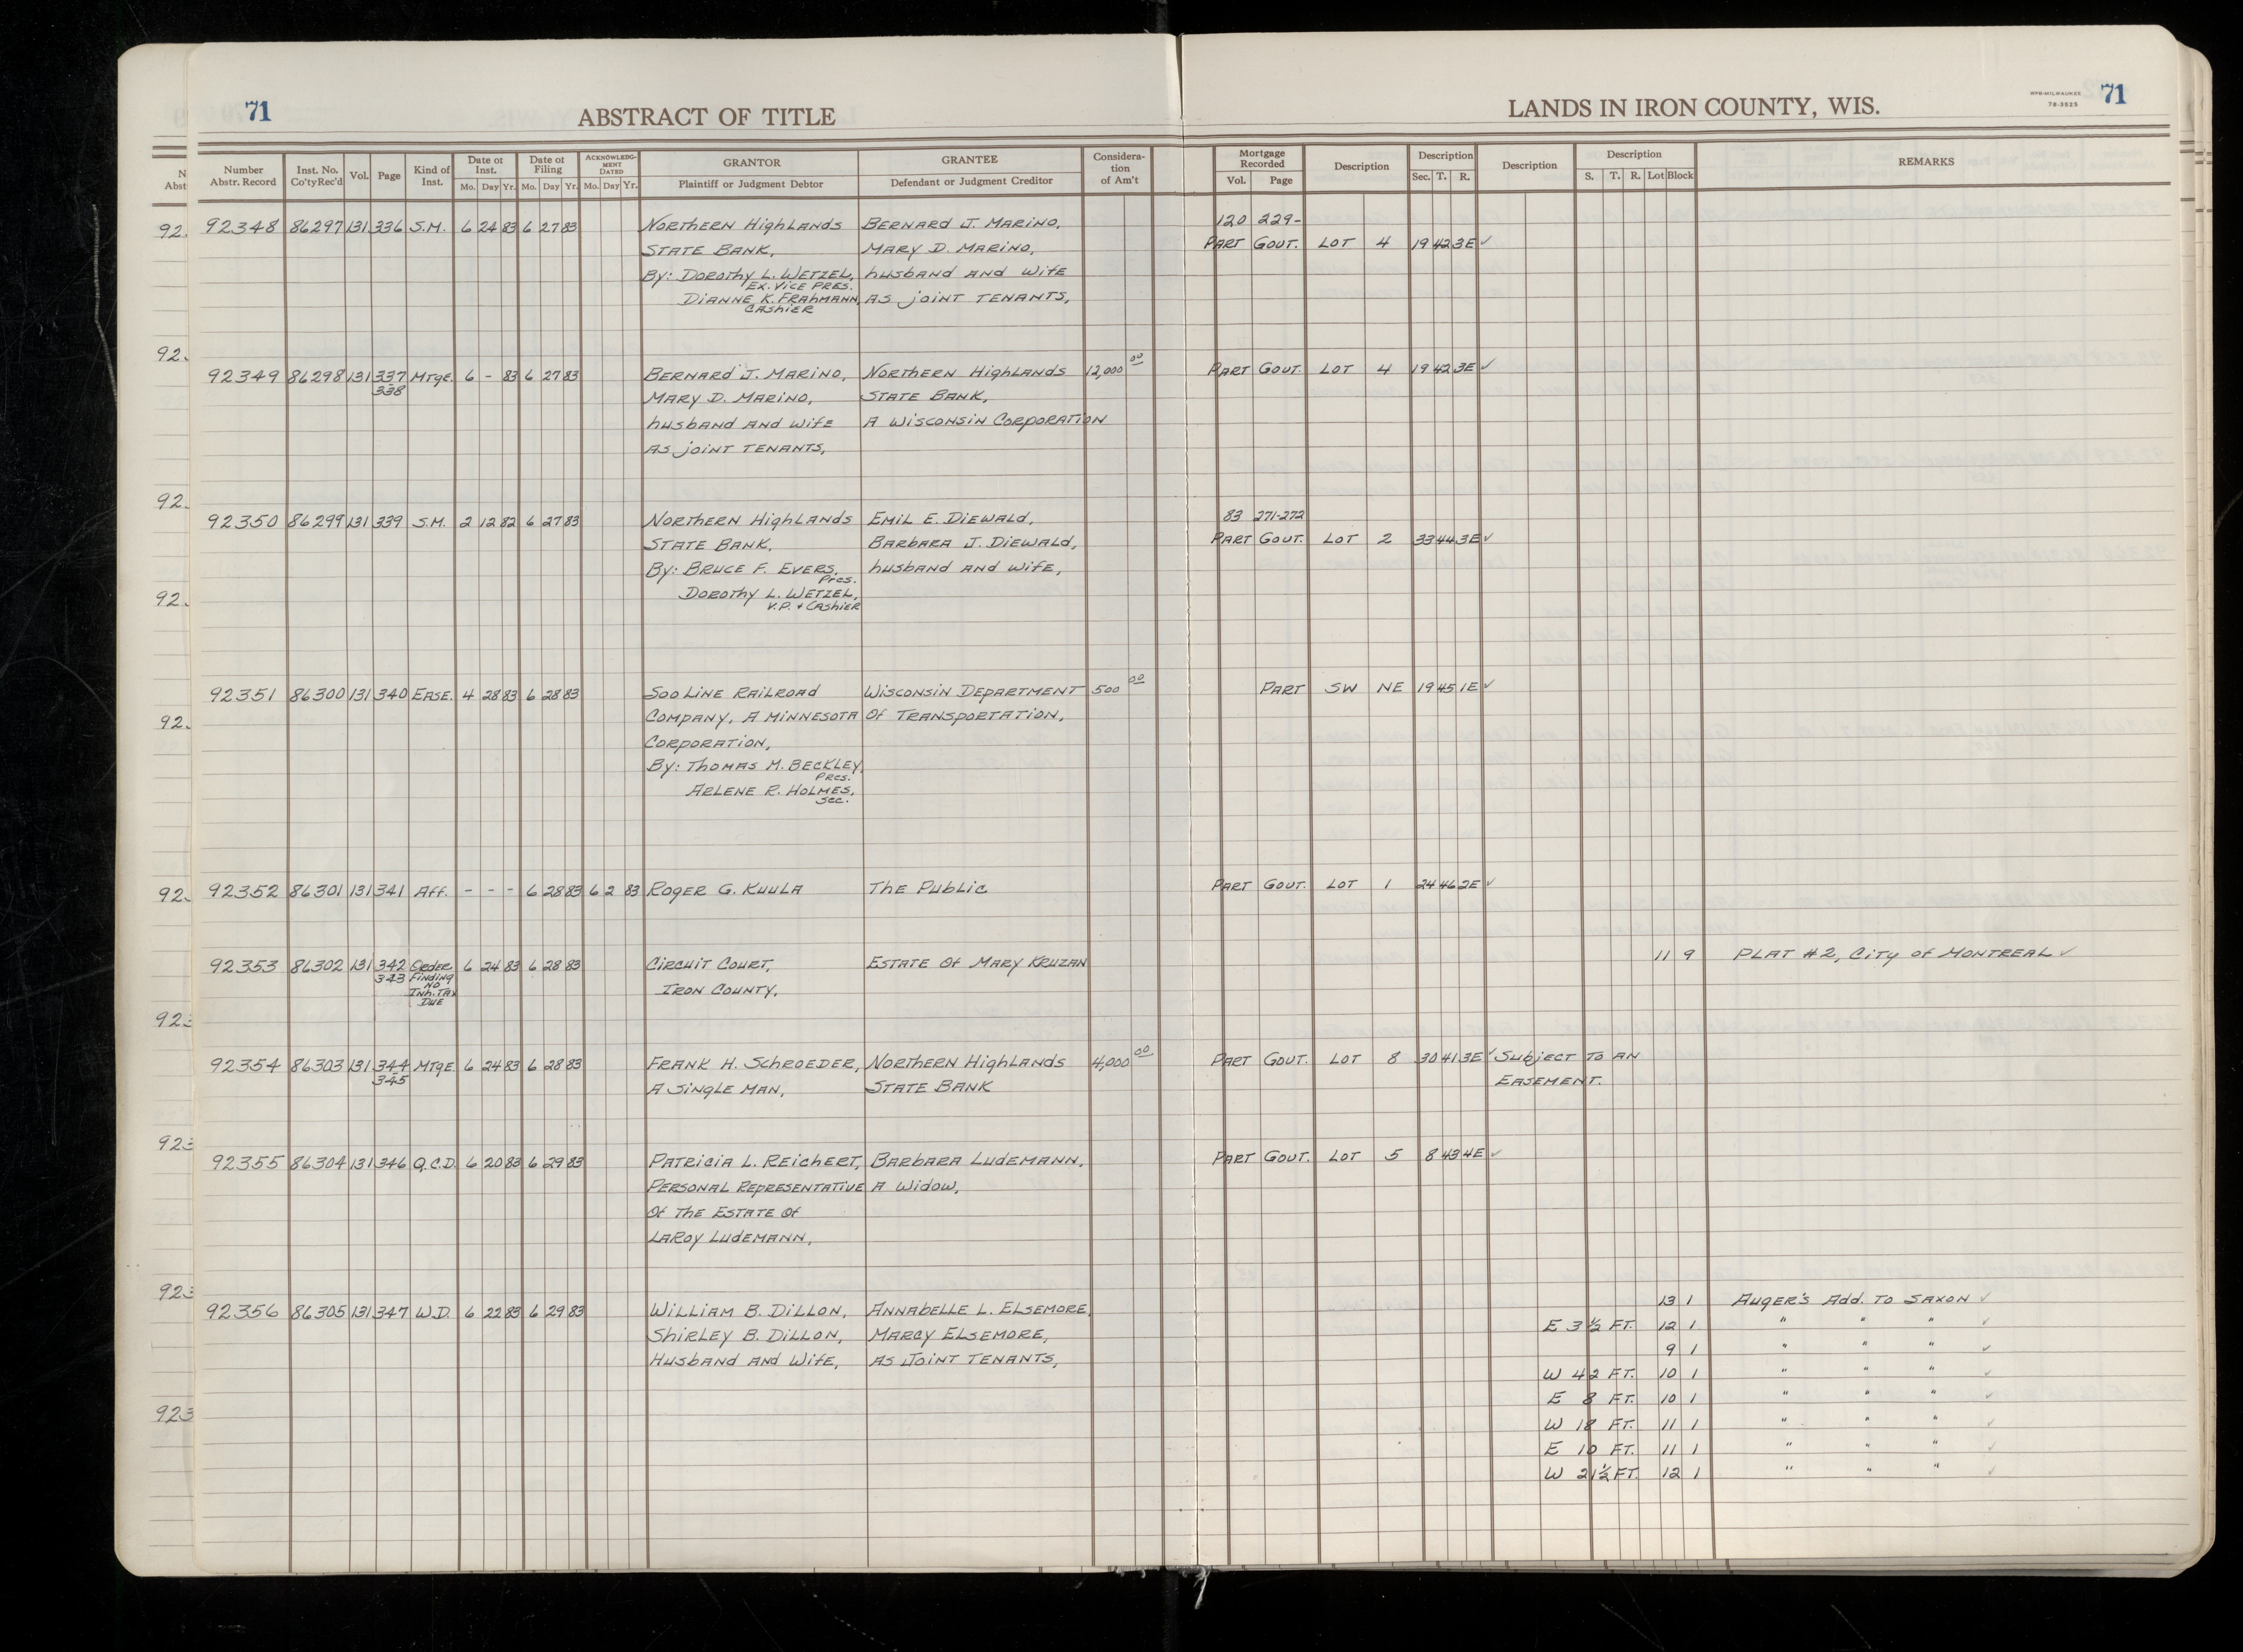 71
ABSTRACT OF TITLE
LANDS IN IRON COUNTY, WIS.
WPB-MILWAUKEE
78-3525
71
Number Abstr. Record | Inst. No. Co'ty Rec'd | Vol. | Page | Kind of Inst. | Date of Inst. Mo. Day Yr. | Date of Filing Mo. Day Yr. | ACKNOWLEDGMENT DATED Mo. Day Yr. | GRANTOR Plaintiff or Judgment Debtor | GRANTEE Defendant or Judgment Creditor | Consideration of Am't | Mortgage Recorded Vol. Page | Description | Description Sec. T. R. | Description | Description S. T. R. Lot Block | REMARKS
92348 86297 131 336 S.M. 6 24 83 6 27 83 Northern Highlands Bernard J. Marino, 120 229-
State Bank, Mary D. Marino, Part Govt. Lot 4 19 42 3E ✓
By: Dorothy L. Wetzel, husband and wife
Ex. Vice Pres.
Dianne K. Frahmann, as joint tenants,
Cashier
92349 86298 131 337 Mtge. 6 - 83 6 27 83 Bernard J. Marino, Northern Highlands 12,000 00 Part Govt. Lot 4 19 42 3E ✓
338 Mary D. Marino, State Bank,
husband and wife A Wisconsin Corporation
as joint tenants,
92350 86299 131 339 S.M. 2 12 82 6 27 83 Northern Highlands Emil E. Diewald, 83 271-272
State Bank, Barbara J. Diewald, Part Govt. Lot 2 33 44 3E ✓
By: Bruce F. Evers, husband and wife,
Pres.
Dorothy L. Wetzel,
V.P. + Cashier
92351 86300 131 340 Ease. 4 28 83 6 28 83 Soo Line Railroad Wisconsin Department 500 00 Part SW NE 19 45 1E ✓
Company, A Minnesota Of Transportation,
Corporation,
By: Thomas M. Beckley,
Pres.
Arlene R. Holmes,
Sec.
92352 86301 131 341 Aff. - - - 6 28 83 6 2 83 Roger G. Kuula The Public Part Govt. Lot 1 24 46 2E ✓
92353 86302 131 342 Order 6 24 83 6 28 83 Circuit Court, Estate of Mary Kruzan 11 9 Plat #2, City of Montreal ✓
343 Finding
No
Inh. Tax
Due
Iron County,
92354 86303 131 344 Mtge. 6 24 83 6 28 83 Frank H. Schroeder, Northern Highlands 4,000 00 Part Govt. Lot 8 30 41 3E ✓ Subject to an
345 A Single Man, State Bank Easement.
92355 86304 131 346 Q.C.D. 6 20 83 6 29 83 Patricia L. Reichert, Barbara Ludemann, Part Govt. Lot 5 8 43 4E ✓
Personal Representative A Widow,
Of The Estate Of
LaRoy Ludemann,
92356 86305 131 347 W.D. 6 22 83 6 29 83 William B. Dillon, Annabelle L. Elsemore, 13 1 Auger's Add. To Saxon ✓
Shirley B. Dillon, Marcy Elsemore, E 3 ½ Ft. 12 1 " " " ✓
Husband and Wife, As Joint Tenants, 9 1 " " " ✓
W 42 Ft. 10 1 " " " ✓
E 8 Ft. 10 1 " " " ✓
W 18 Ft. 11 1 " " " ✓
E 10 Ft. 11 1 " " " ✓
W 21½ Ft. 12 1 " " " ✓